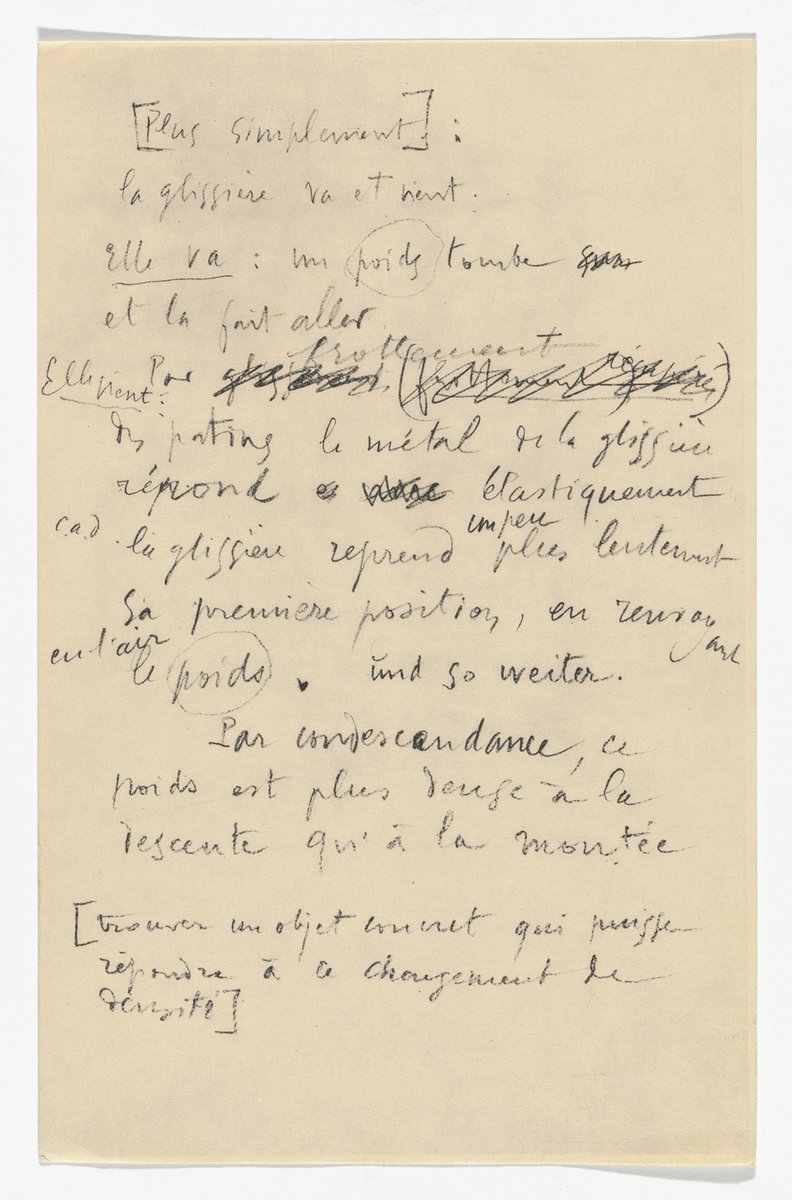 [Plus simplement] :
la glissière va et vient.
Elle va : un poids tombe
et la fait aller.
frottement
Elle vient : Par
des patins le métal de la glissière
répond élastiquement
un peu
c.a.d la glissière reprend plus lentement
sa première position, en renvoyant
en l'air
le poids. und so weiter.
Par condescendance, ce
poids est plus dense à la
descente qu'à la montée
[trouver un objet concret qui puisse
répondre à ce changement de
densité]